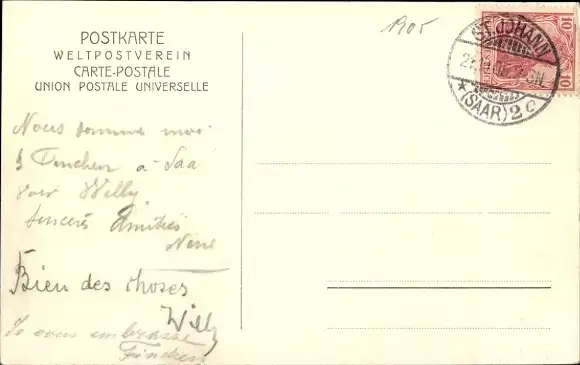 POSTKARTE
WELTPOSTVEREIN
CARTE-POSTALE
UNION POSTALE UNIVERSELLE
1905
ST. JOHANN
(SAAR) 2 c
10 10
Nous sommes
a
voir Willy
Sincères Amitiés
Bien des choses
Willy
Je vous embrasse